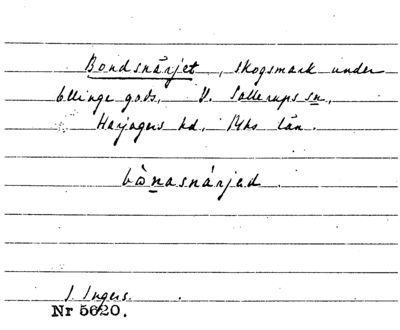 Bondsnärjet, skogsmark under
Ellinge gods, V. Sallerups sn,
Harjagers hd, Mhs län.
bònasnárjed.
I. Ingers.
Nr 5620.